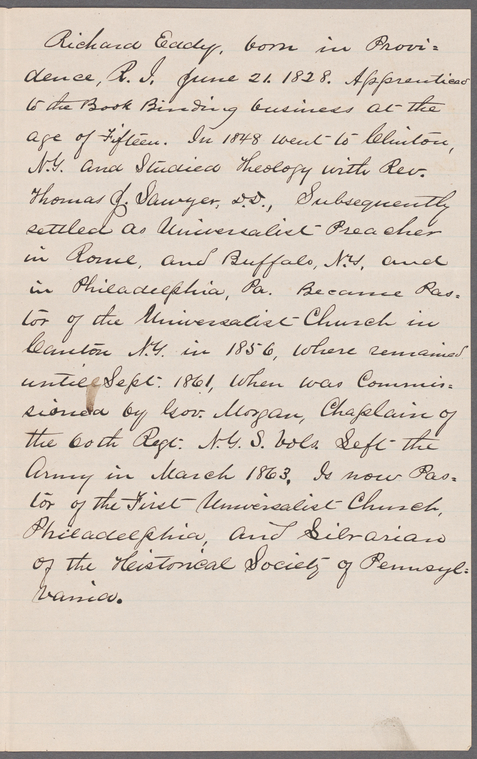 Richard Eddy, born in Provi=
dence, R. I. June 21. 1828. Apprenticed
to the Book Binding business at the
age of Fifteen. In 1848 went to Clinton,
N.Y. and Studied Theology with Rev.
Thomas J. Sawyer, D.D., Subsequently
settled as Universalist Preacher
in Rome, and Buffalo, N.Y, and
in Philadelphia, Pa. Became Pas=
tor of the Universalist Church in
Canton N.Y. in 1856, where remained
untill Sept. 1861, when was Commis=
sioned by Gov. Morgan, Chaplain of
the 60th Regt. N.Y. S. Vols. Left the
Army in March 1863. Is now Pas=
tor of the First Universalist Church,
Philadelphia, and Librarian
of the Historical Society of Pennsyl=
vania.